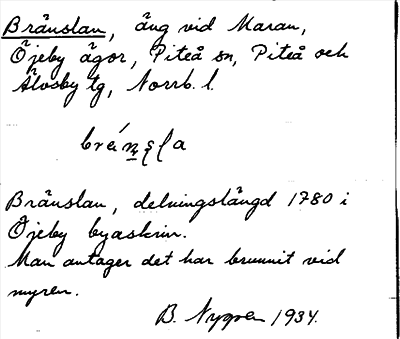 Bränslan, äng vid Maran,
Öjeby ägor, Piteå sn, Piteå och
Älvsby tg, Norrb. l.
Bränslan, delningslängd 1780 i
Öjeby byaskrin.
Man antager det har brunnit vid
myren.
B. Nygren 1934.